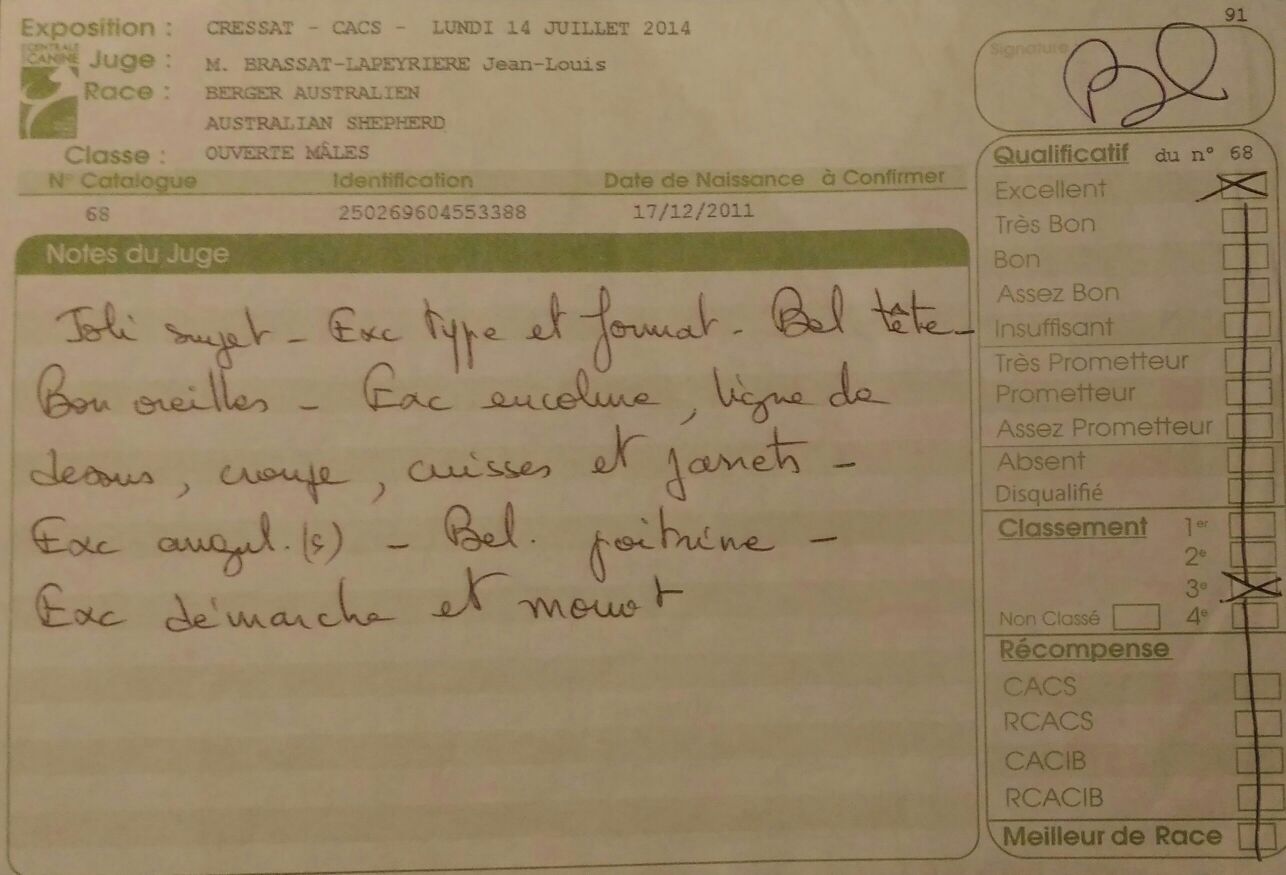 91
Exposition : CRESSAT - CACS - LUNDI 14 JUILLET 2014
CENTRALE CANINE
Juge : M. BRASSAT-LAPEYRIERE Jean-Louis
Race : BERGER AUSTRALIEN
AUSTRALIAN SHEPHERD
Classe : OUVERTE MÂLES
N° Catalogue Identification Date de Naissance à Confirmer
68 250269604553388 17/12/2011
Notes du Juge
Joli sujet - Exc type et format - Bel tête -
Bon oreilles - Exc encolure, ligne de
dessus, croupe, cuisses et jarrets -
Exc angul.(s) - Bel. poitrine -
Exc démarche et mouvt
Signature
Qualificatif du n° 68
Excellent
Très Bon
Bon
Assez Bon
Insuffisant
Très Prometteur
Prometteur
Assez Prometteur
Absent
Disqualifié
Classement 1er
2e
3e
Non Classé 4e
Récompense
CACS
RCACS
CACIB
RCACIB
Meilleur de Race